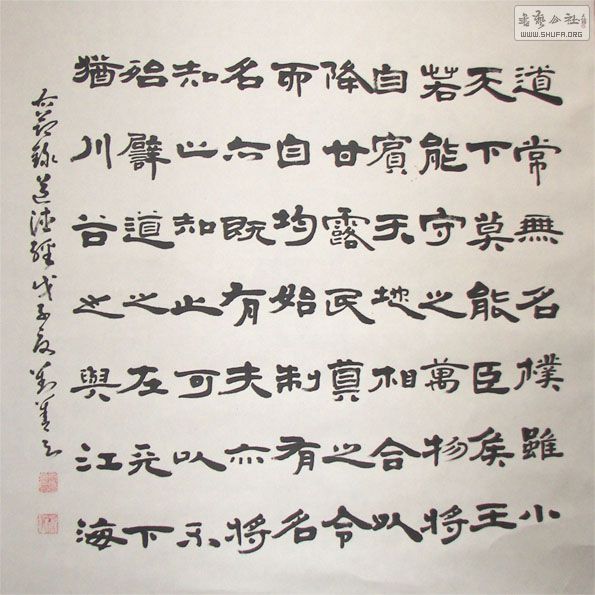 道常無名樸雖小
天下莫能臣侯王
若能守之萬物將
自賓天地相合以
降甘露民莫之令
而自均始制有名
名亦既有夫亦將
知止知止可以不
殆譬道之在天下
猶川谷之與江海
右節錄道德經戊子夏
書藝公社
WWW.SHUFA.ORG